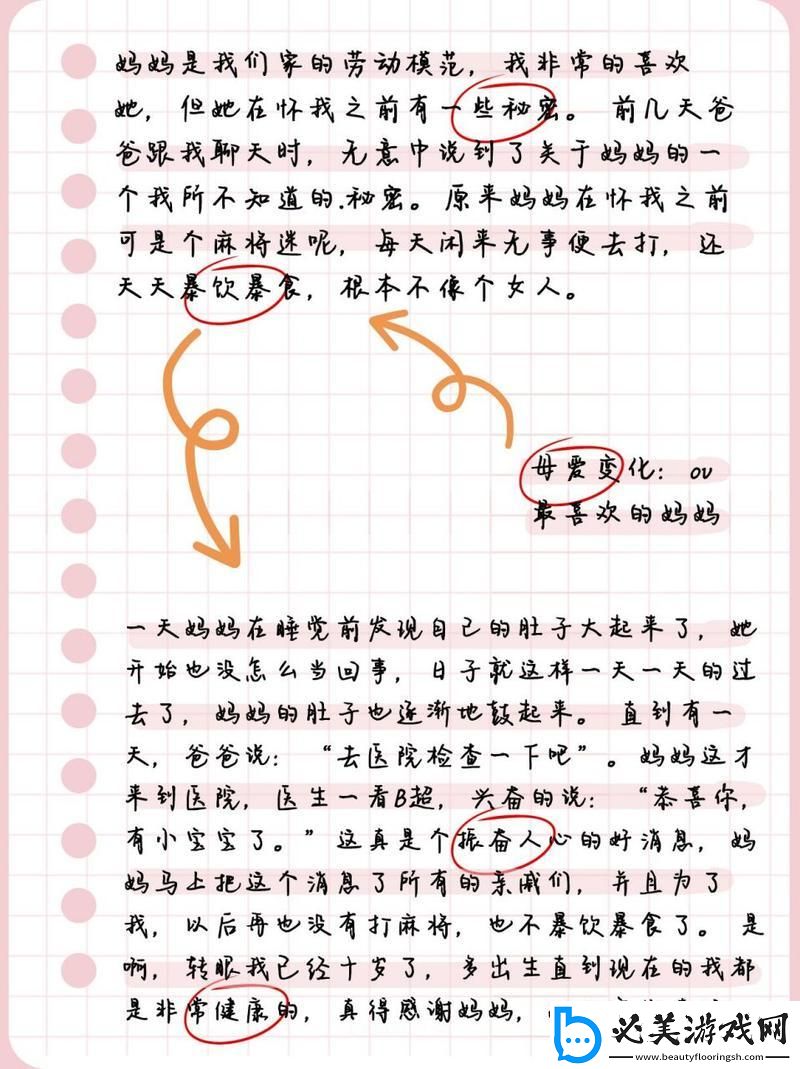 妈妈是我们家的劳动模范，我非常的喜欢
她，但她在怀我之前有一些秘密。前几天爸
爸跟我聊天时，无意中说到了关于妈妈的一
个我所不知道的.秘密。原来妈妈在怀我之前
可是个麻将迷呢，每天闲来无事便去打，还
天天暴饮暴食，根本不像个女人。
母爱变化：ov
最喜欢的妈妈
一天妈妈在睡觉前发现自己的肚子大起来了，她
开始也没怎么当回事，日子就这样一天一天的过
去了，妈妈的肚子也逐渐地鼓起来。直到有一
天，爸爸说：“去医院检查一下吧”。妈妈这才
来到医院，医生一看B超，兴奋的说：“恭喜你，
有小宝宝了。”这真是个振奋人心的好消息，妈
妈马上把这个消息了所有的亲戚们，并且为了
我，以后再也没有打麻将，也不暴饮暴食了。是
啊，转眼我已经十岁了，多出生直到现在的我都
是非常健康的，真得感谢妈妈，
必美游戏网
www.beautyflooringsh.com